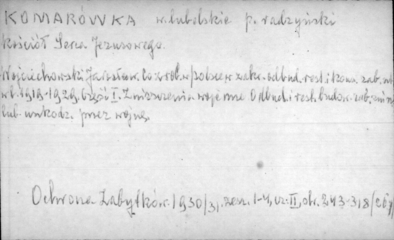 KOMARÓWKA w. lubelskie p. radzyński
Kościół Serca Jezusowego.
Wojciechowski Jarosław. Co zrob. w polsce w zakr. odbud. rest. i konserw. zab. arch.
w l. 1919-1929. Część I. Zniszczenia wojenne. Odbud. i rest. budow. zab. zniszcz.
lub uszkodz. przez wojnę.
Ochrona Zabytków. 1930/31. zesz. 1-4, cz. II, str. 243-318 (269)